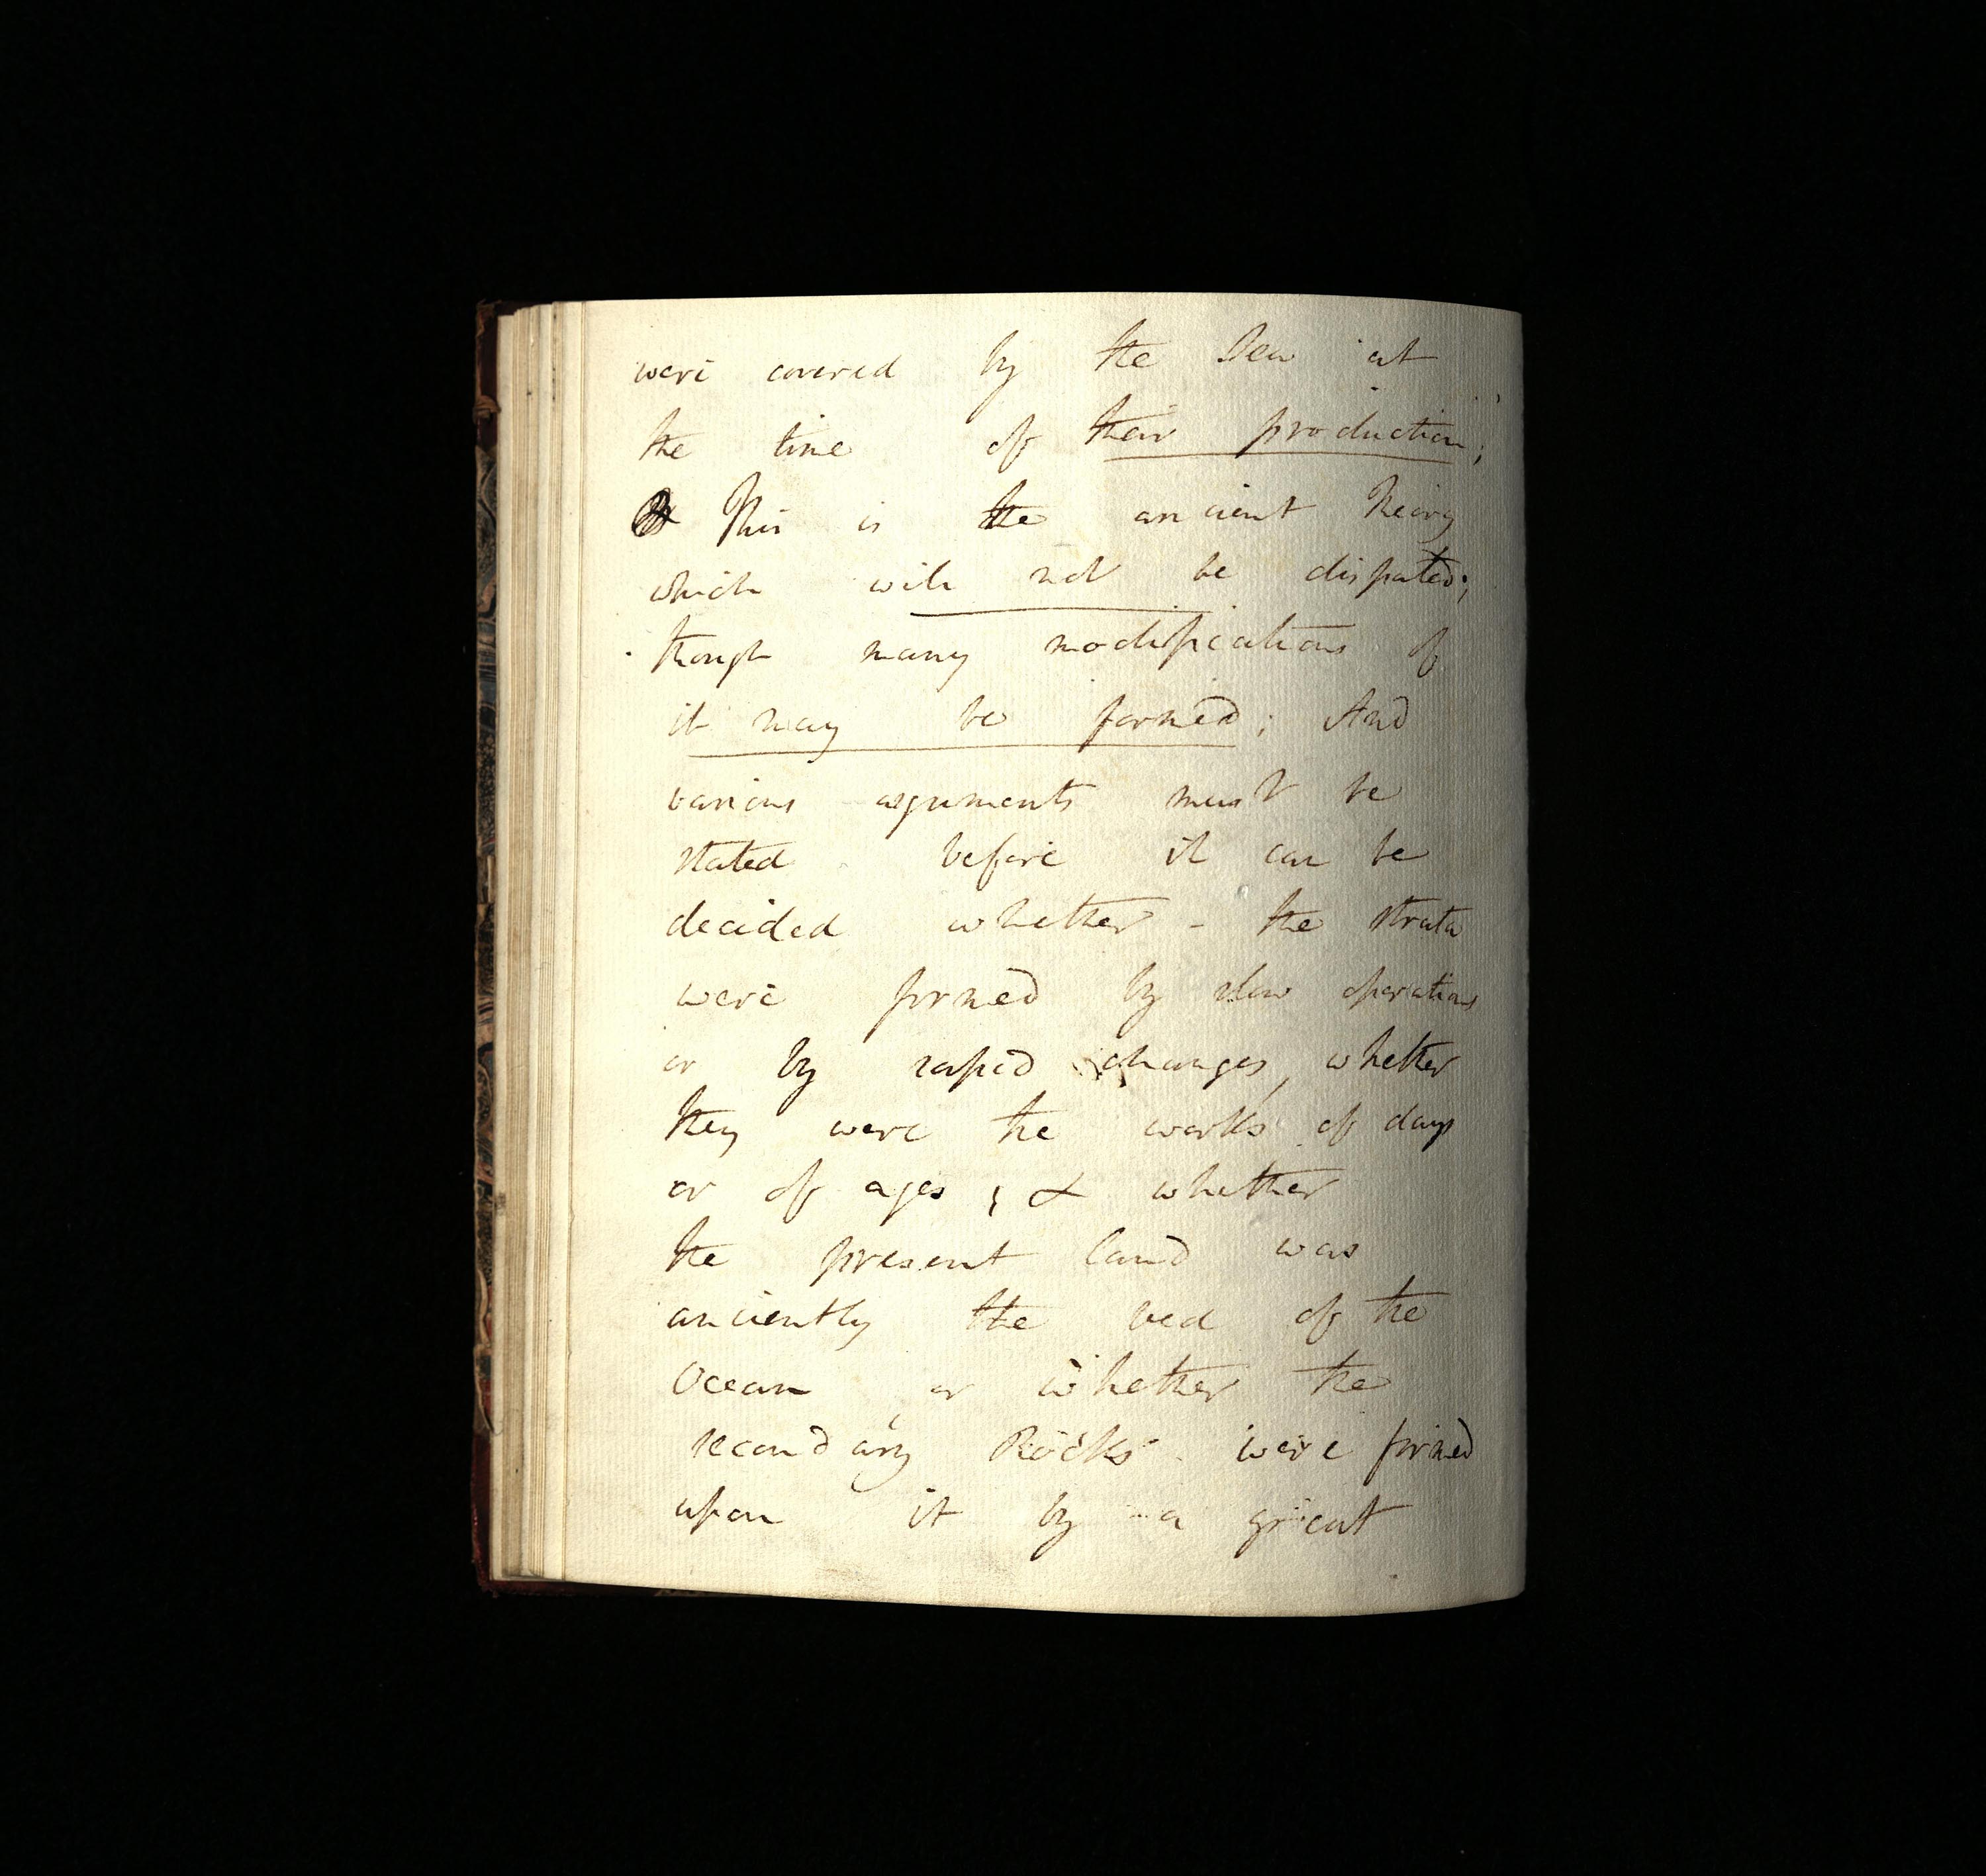 were covered by the Sea at
the time of their production;
This is the ancient Theory
which will not be disputed;
though many modifications of
it may be formed; And
various arguments must be
stated before it can be
decided whether - the strata
were formed by slow operations
or by rapid changes, whether
they were the works of days
or of ages; & whether
the present land was
anciently the bed of the
Ocean, or whether the
secondary Rocks were formed
upon it by a great